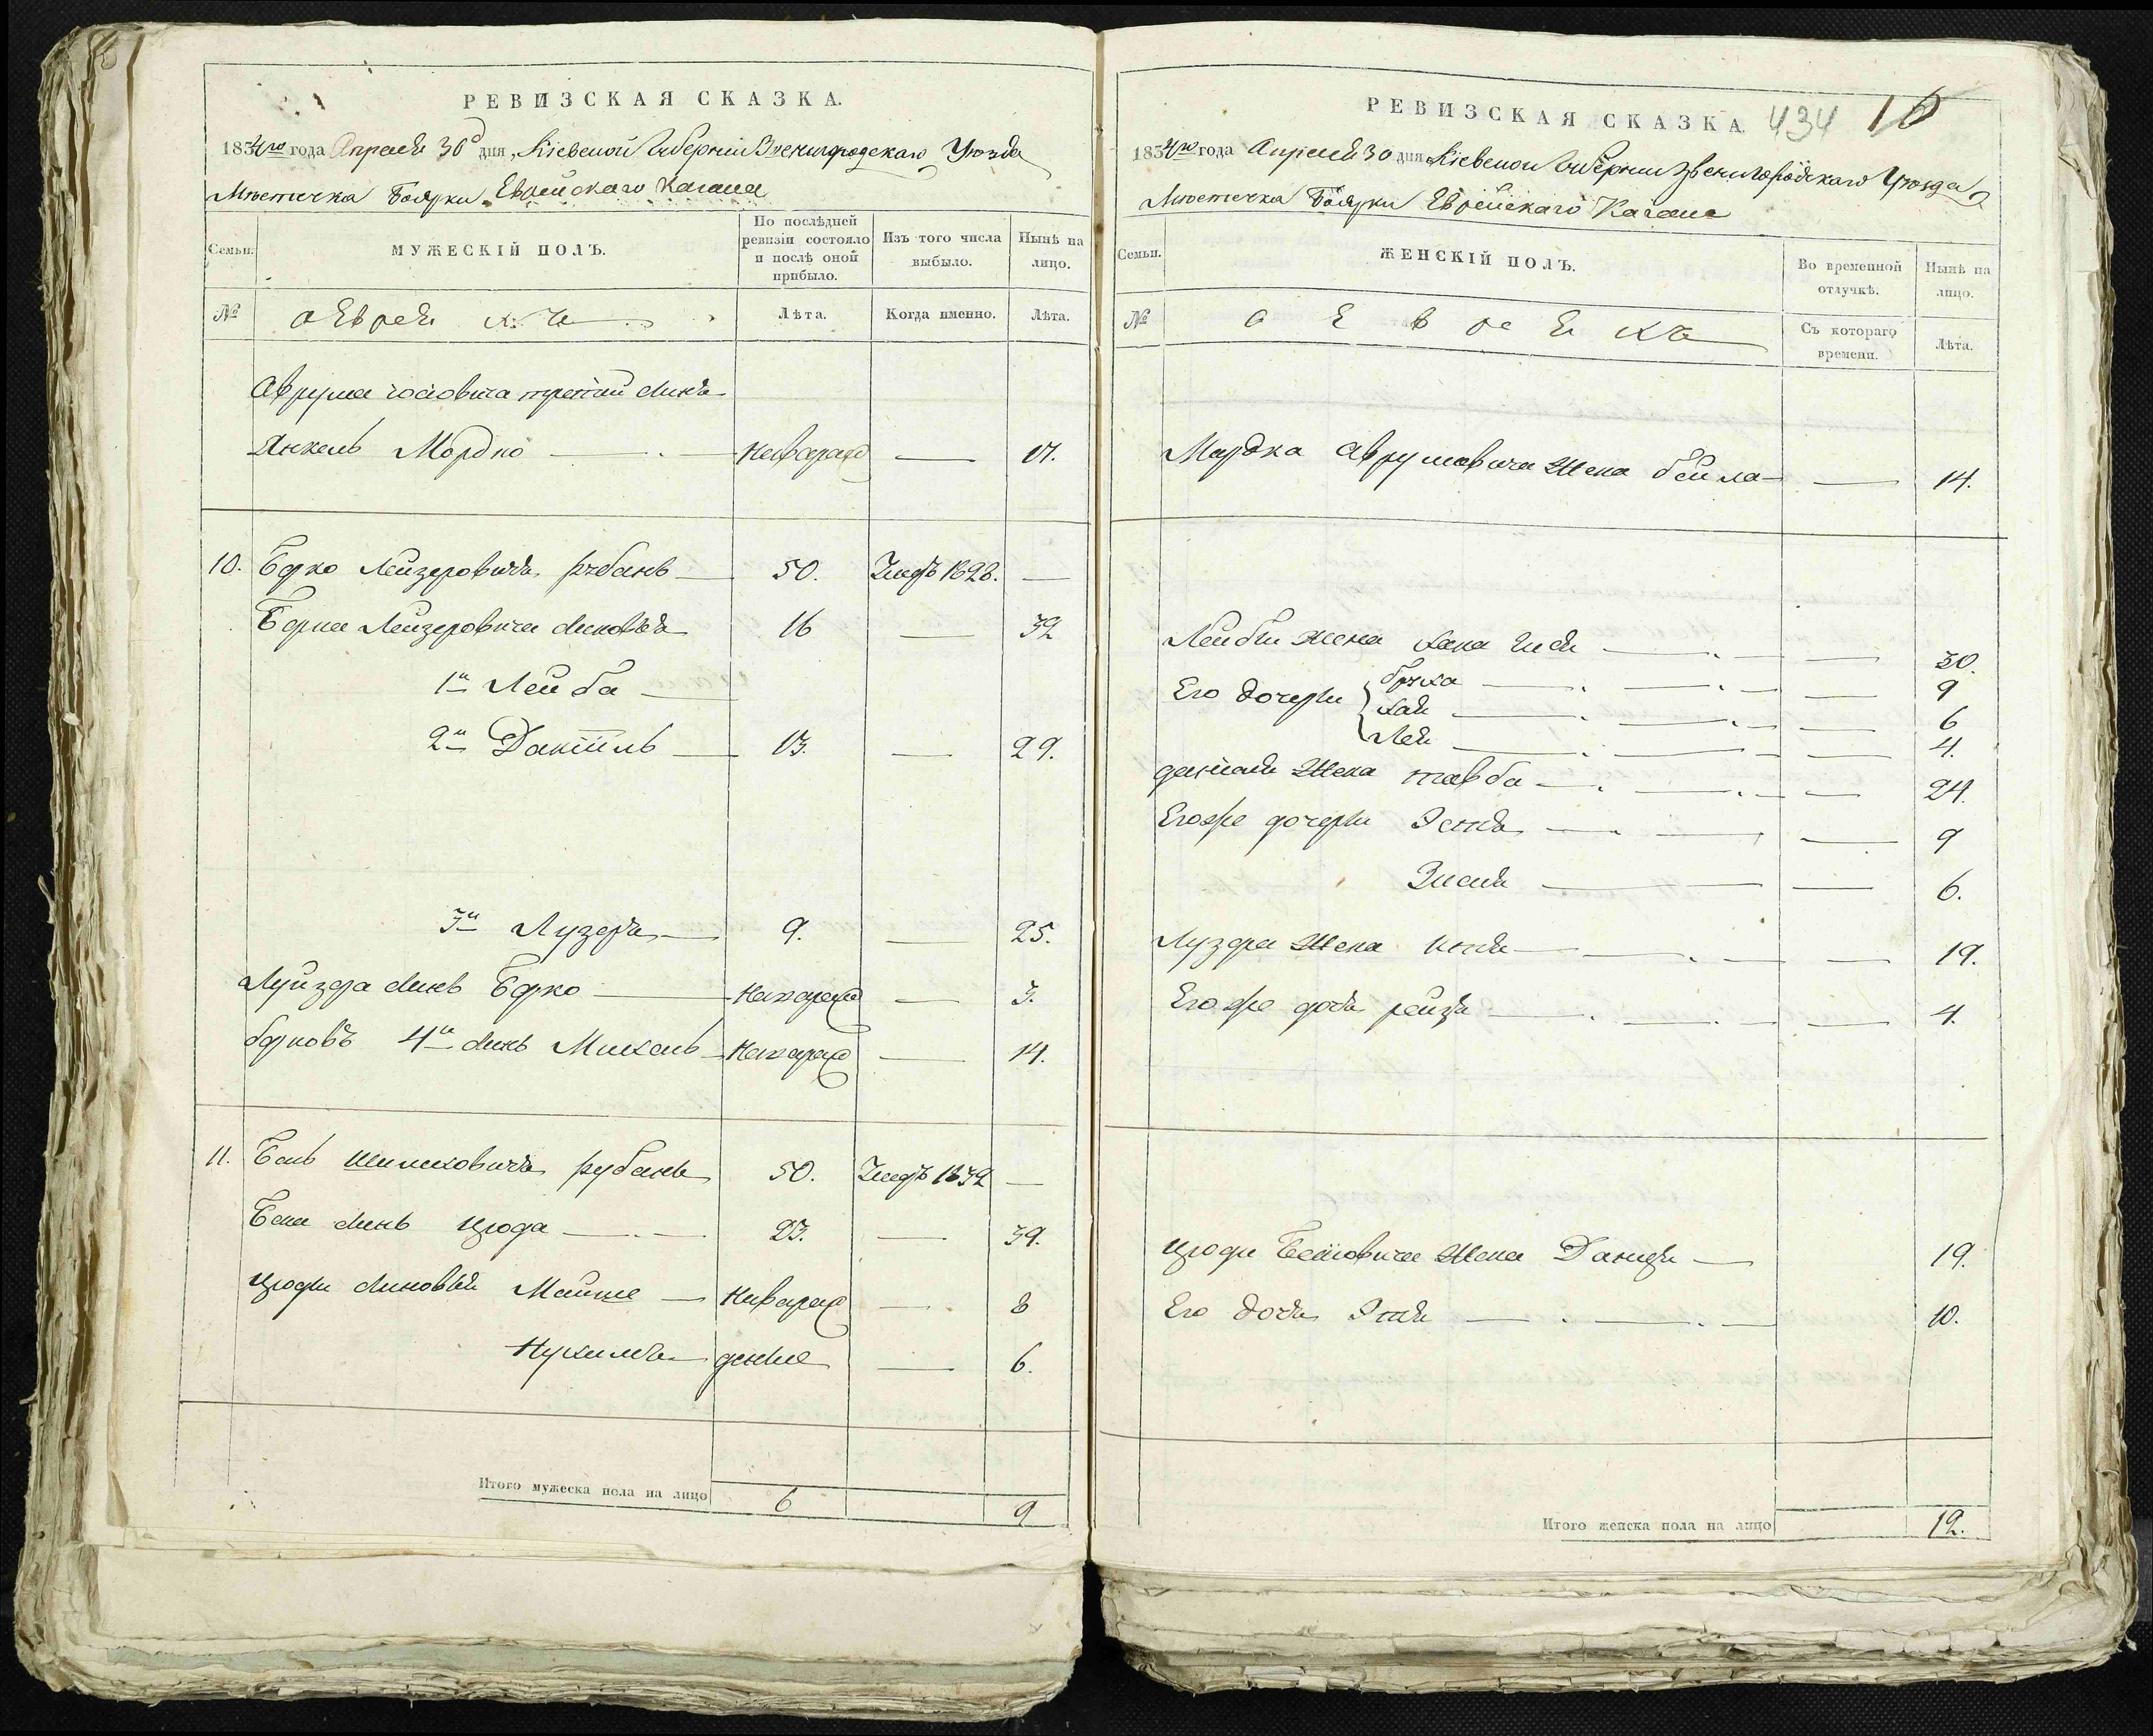 РЕВИЗСКАЯ СКАЗКА.
1834го года Апреля 30 дня, Кіевской Губерніи Звенигородскаго Уѣзда
Мѣстечка Боярки Еврейскаго Кагала
Семьи.
МУЖЕСКІЙ ПОЛЪ.
По послѣдней ревизіи состояло и послѣ оной прибыло.
Изъ того числа выбыло.
Нынѣ на лицо.
№
о Евреяхъ
Лѣта.
Когда именно.
Лѣта.
Аврума Іосіовича третий синъ
Янкель Мордко 17.
10. Берко Лейзеровичъ рубанъ 50. 1828. —
Берка Лейзеровича синовья 16 — 32
1й Лейба
2й Даніиль 13. — 29.
3й Лузеръ 9. — 25.
Луйзера синъ Берко — 3.
берковъ 4й синъ Михель — 14.
11. рубанъ 50. 1832 —
синъ 23. — 39.
синовья Мойше — 8
Нухимъ — 6.
Итого мужеска пола на лицо 6 9
РЕВИЗСКАЯ СКАЗКА. 434 10
1834го года Апреля 30 дня Кіевской Губерніи Звенигородскаго Уѣзда
Мѣстечка Боярки Еврейскаго Кагала
Семьи.
ЖЕНСКІЙ ПОЛЪ.
Во временной отлучкѣ.
Нынѣ на лицо.
№
о Еврейкахъ
Съ котораго времени.
Лѣта.
Мордка Аврумовича Жена бейла — 14.
Лейбы жена хана — 30.
Его дочери 9
хая — 6
Лея — 4.
Жена тавба — 24.
Егоже дочери Эстя — 9
Зися — 6.
Лузера Жена — 19.
Егоже дочь рейзя — 4.
Жена 19.
Его дочь Этя 10.
Итого женска пола на лицо 12.